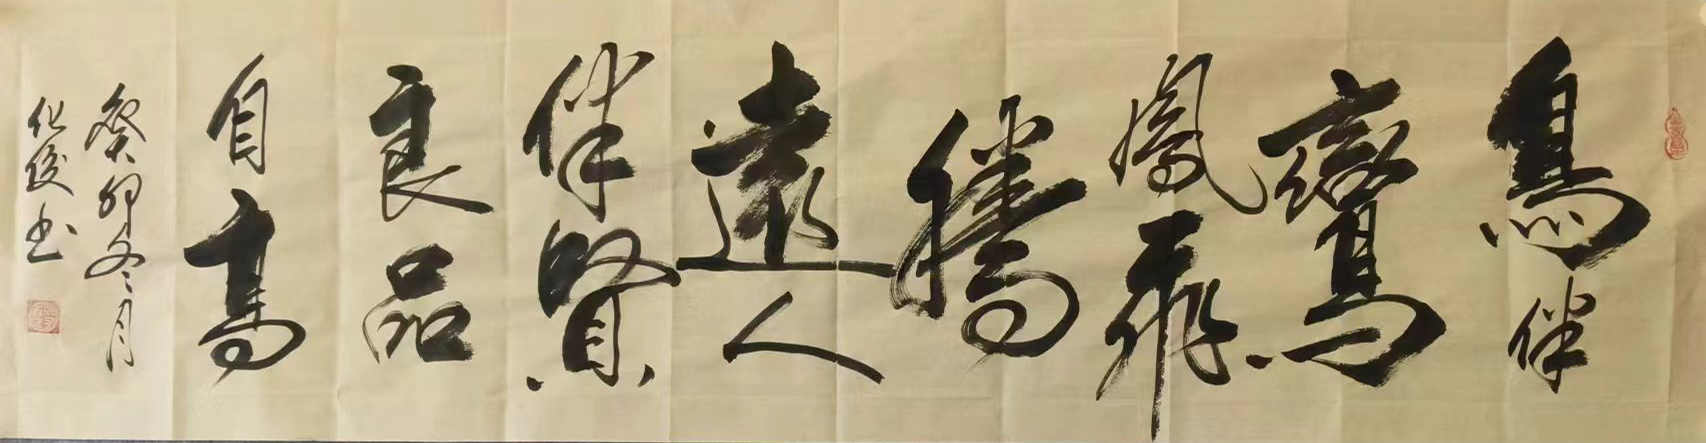 鳥伴
鸞
鳳飛
騰遠
人
伴賢
良品
自高
癸卯冬月
化俊书